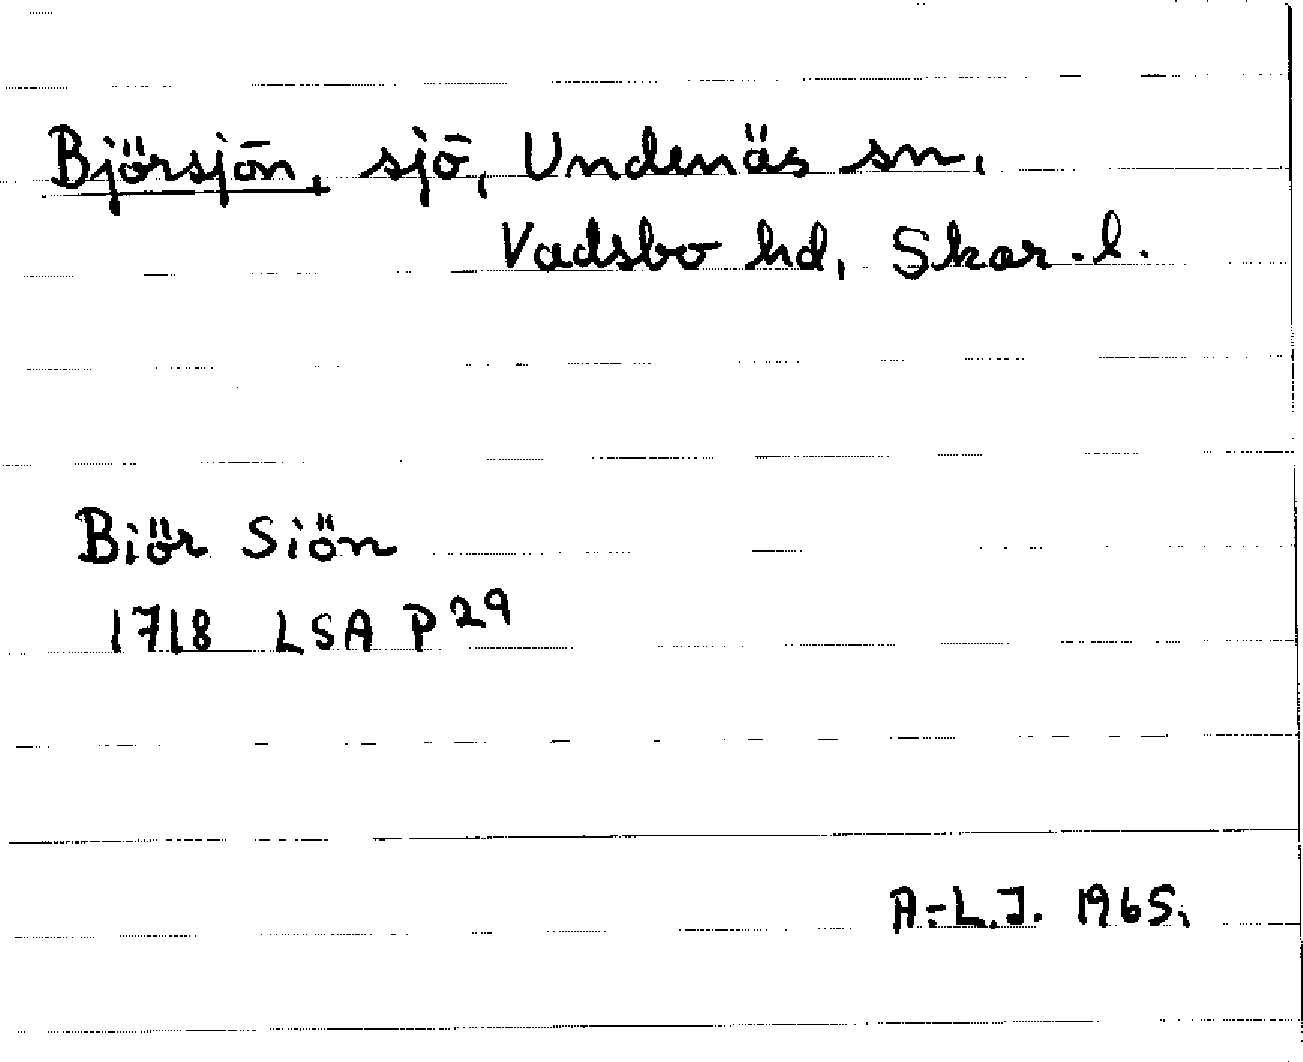 Björsjön, sjö, Undenäs sn,
Vadsbo hd, Skar.l.
Biör Siön
1718 LSA P 29
A-L.J. 1965.